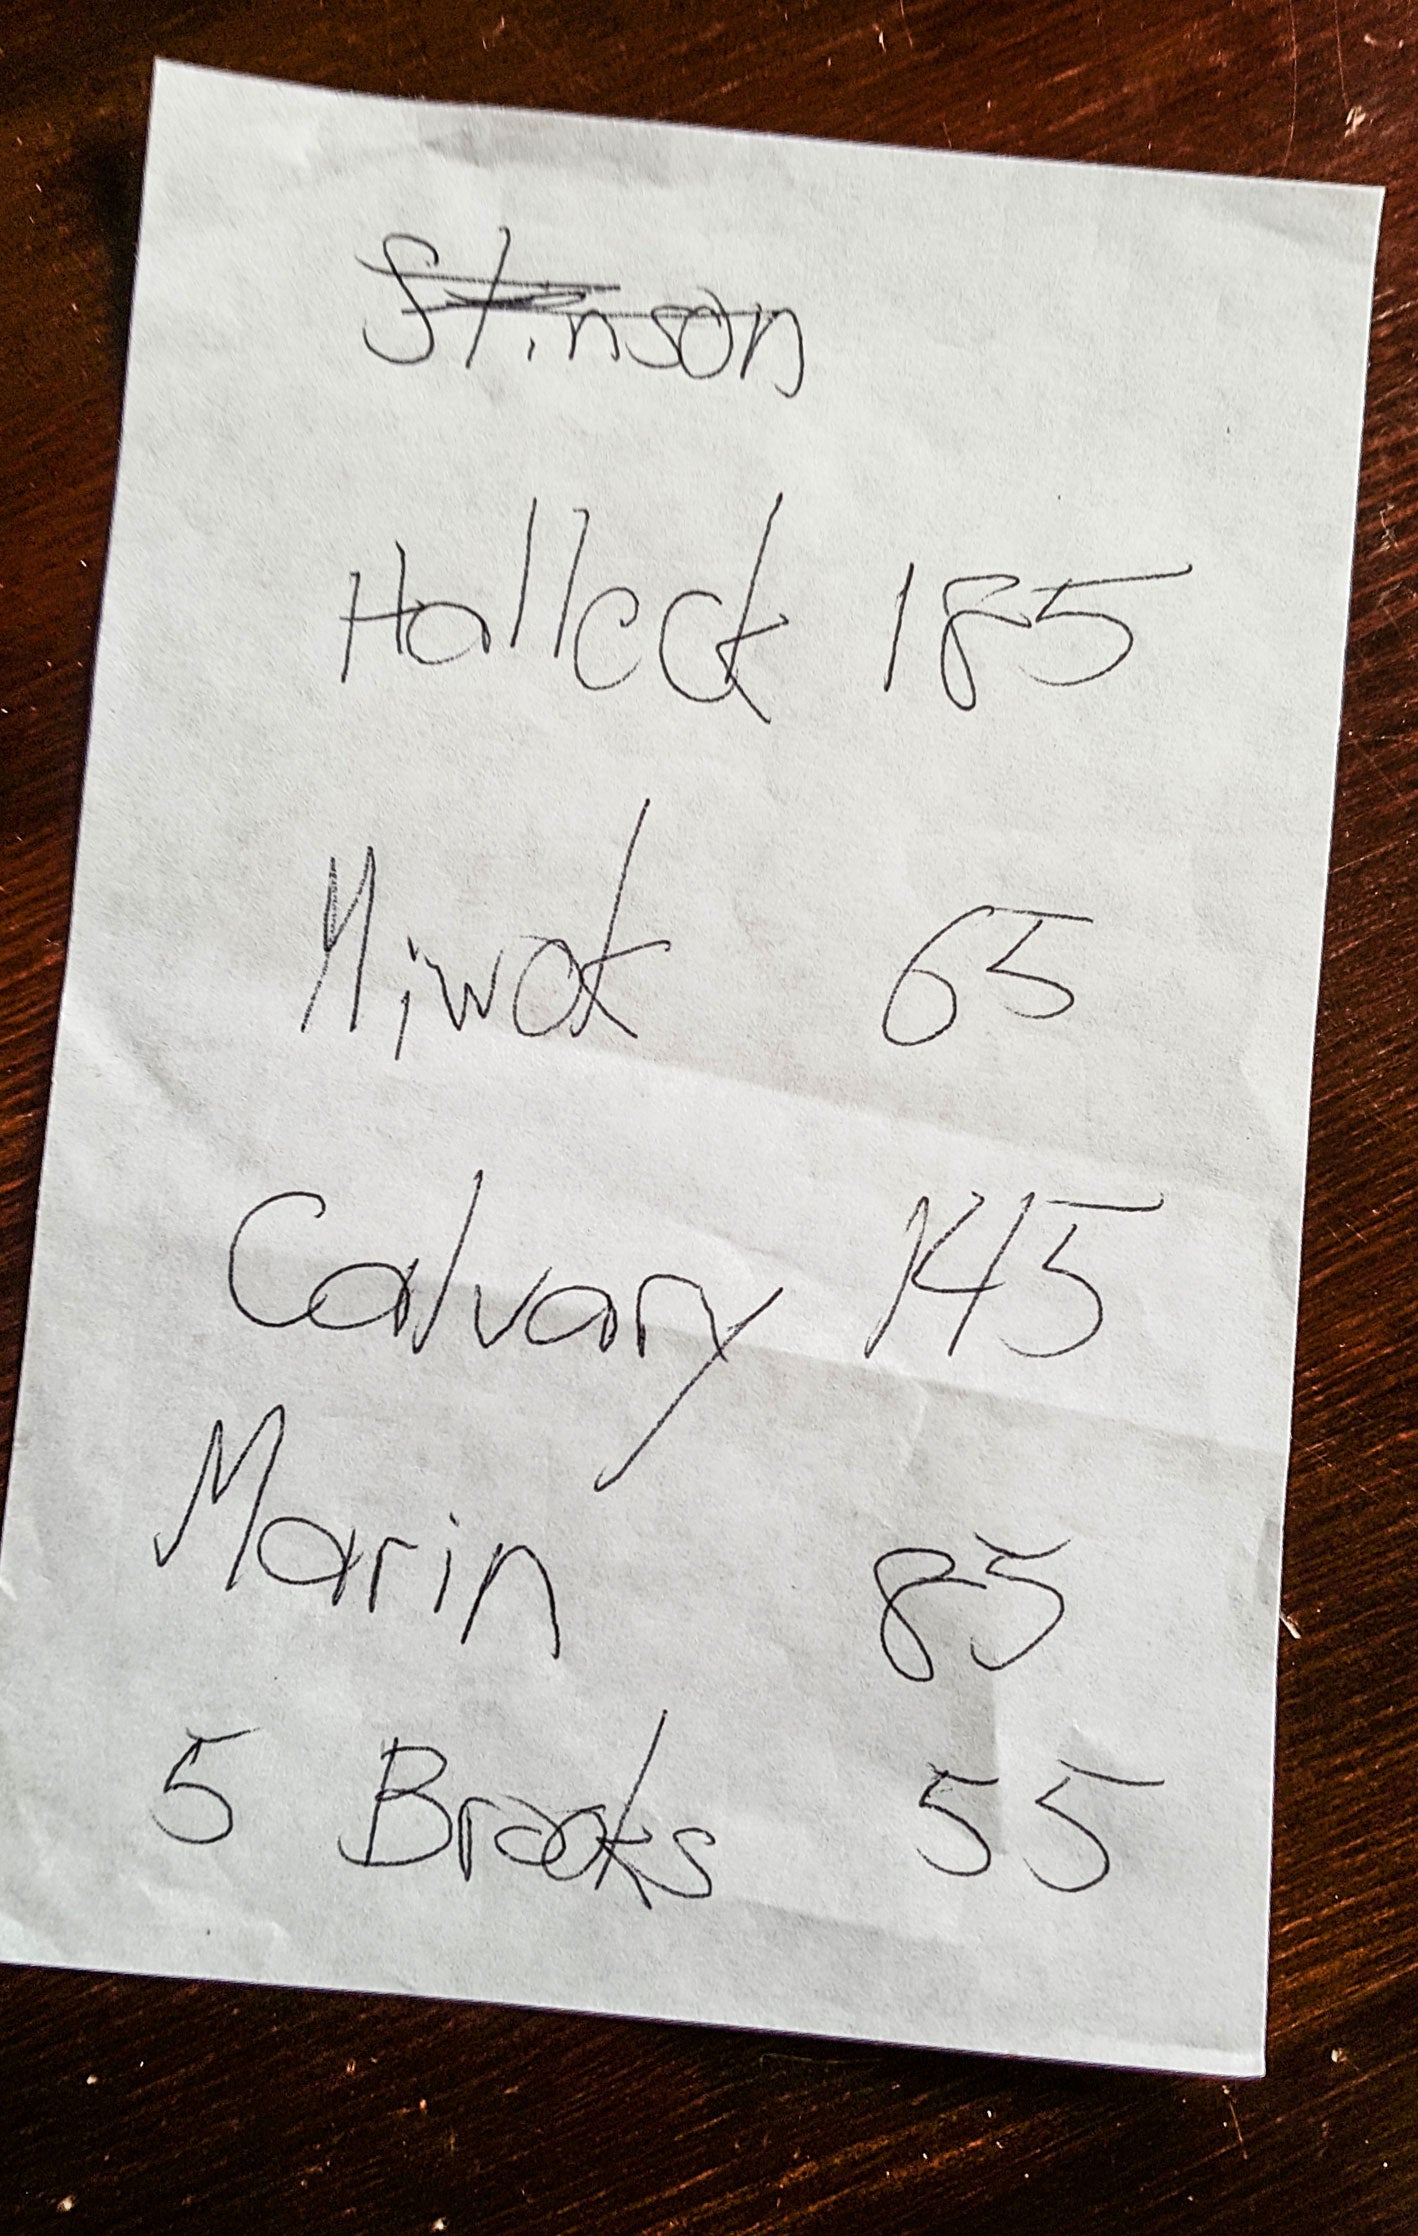 Stinson
Halleck 185
Miwok 65
Calvary 145
Marin 85
5 Brooks 55